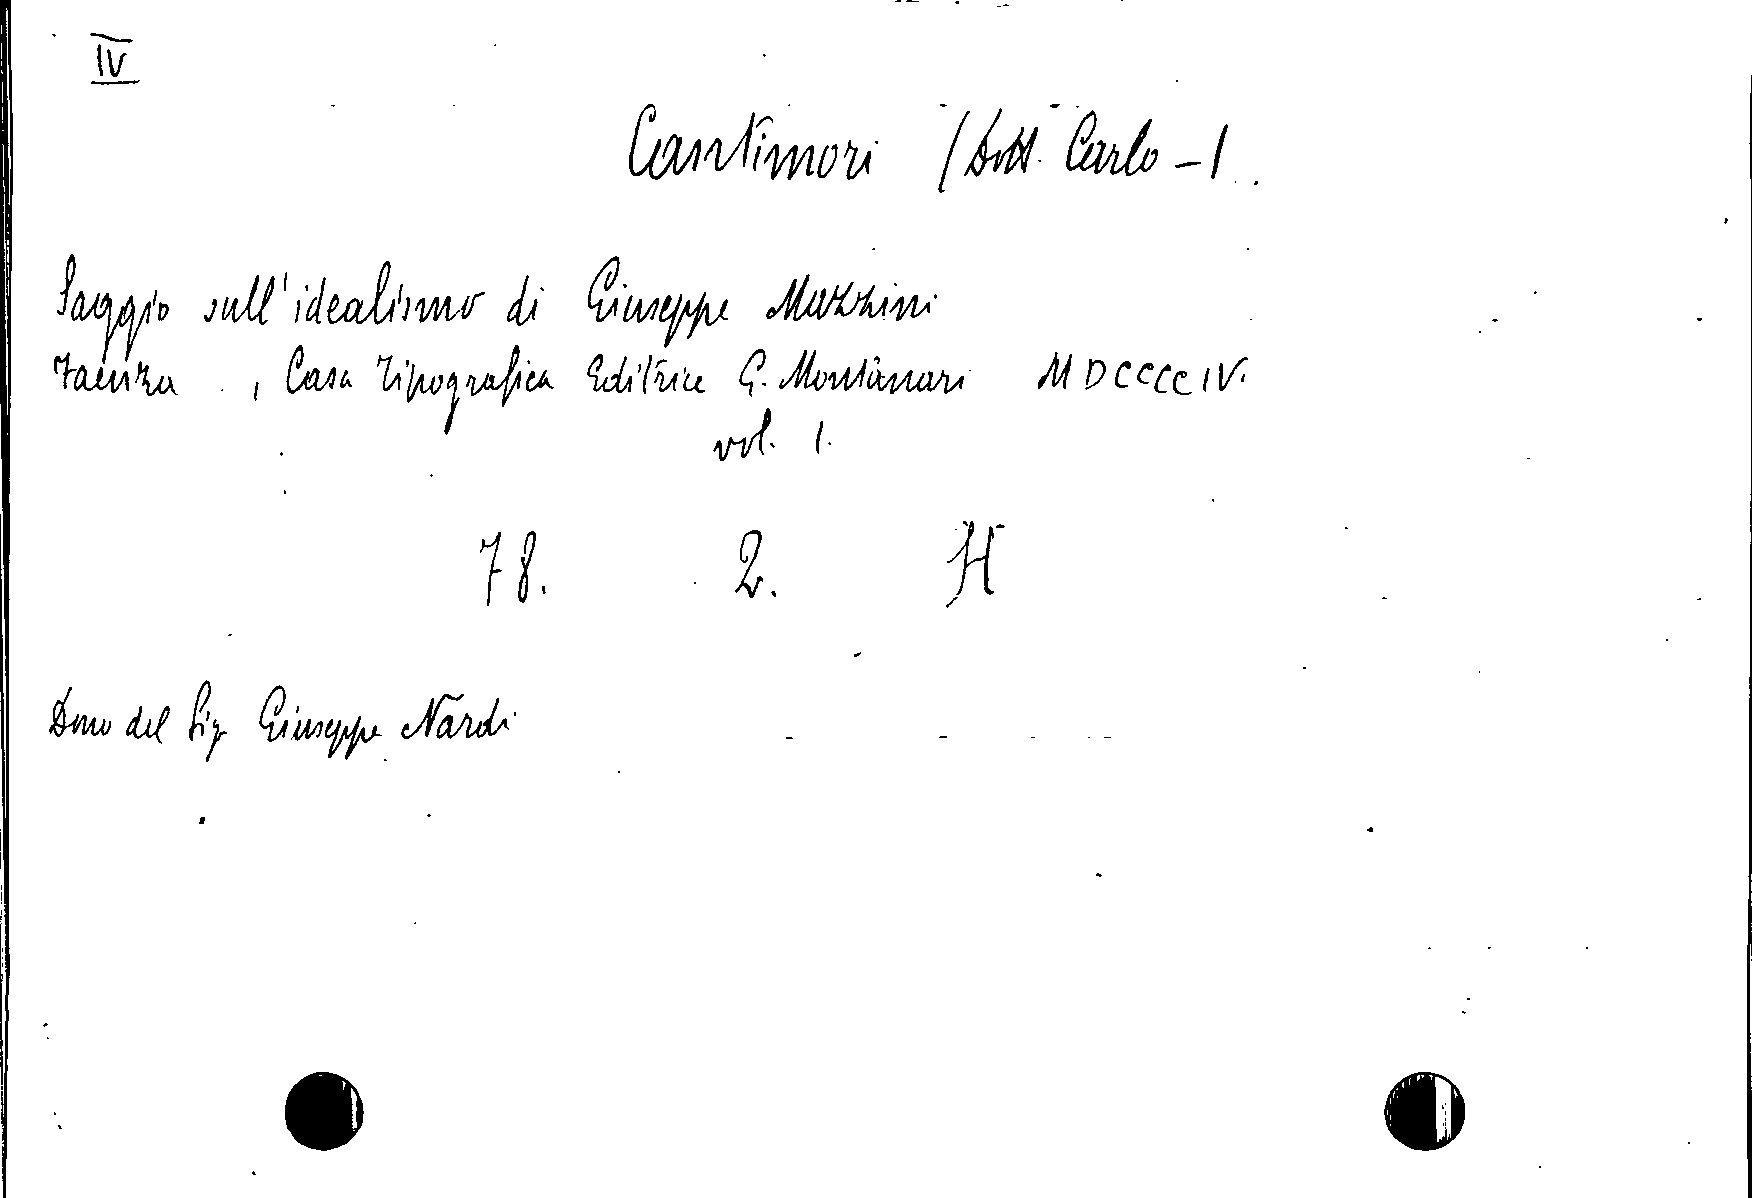 IV
Cantimori (Dott. Carlo -)
Saggio sull'idealismo di Giuseppe Mazzini
Faenza, Casa Tipografica Editrice G. Montanari MDCCCCIV.
vol. 1.
78. 2. H
Dono del Sig Giuseppe Nardi